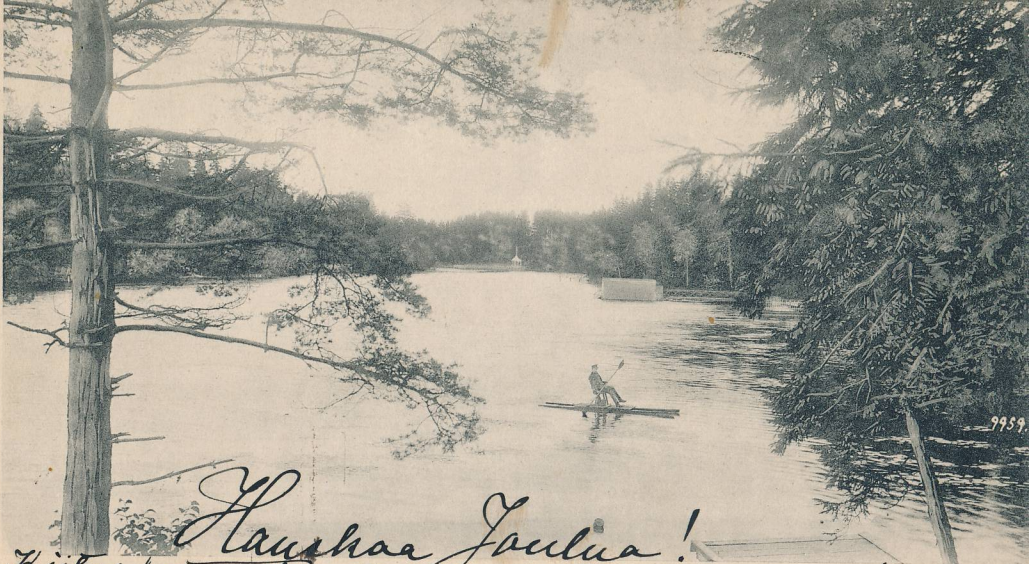 9959
Hauskaa Joulua!